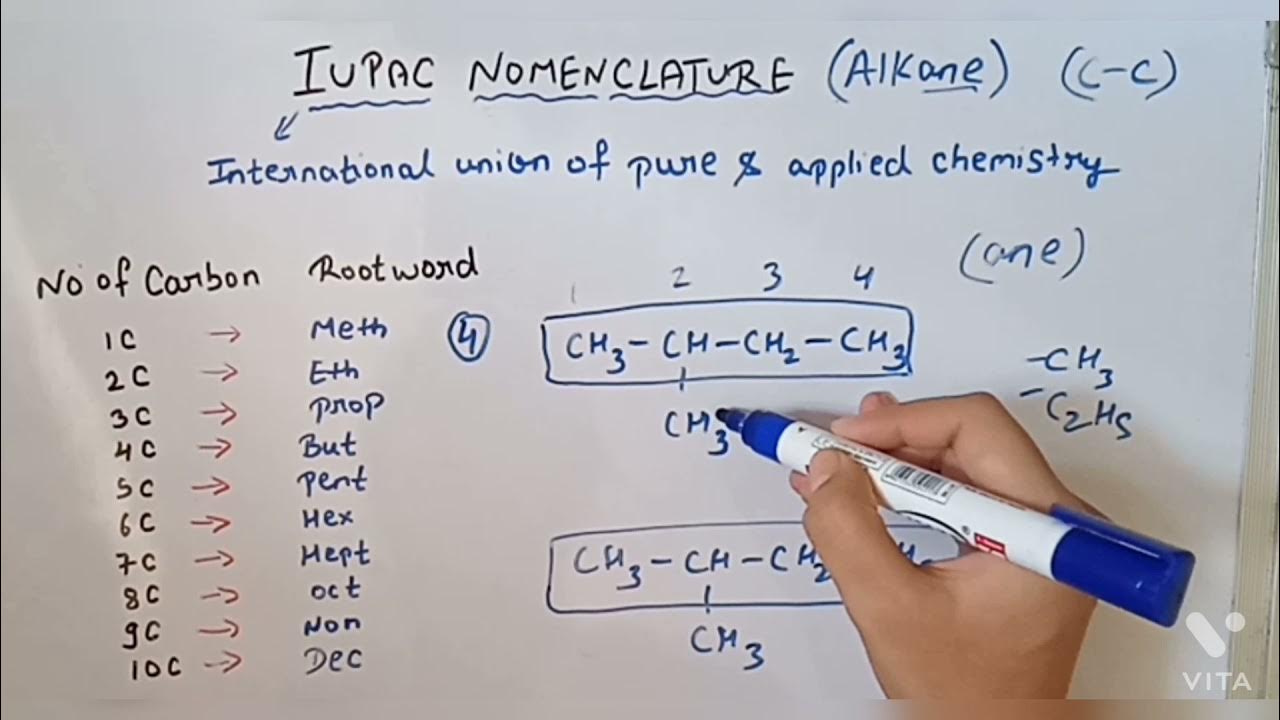 IUPAC NOMENCLATURE (Alkane) (C-C)
International union of pure & applied chemistry
No of Carbon Rootword
1C → Meth
2C → Eth
3C → Prop
4C → But
5C → Pent
6C → Hex
7C → Hept
8C → oct
9C → Non
10C → Dec
(ane)
1 2 3 4
④ CH3-CH-CH2-CH3
CH3
-CH3
-C2H5
CH3-CH-CH2
CH3
VITA